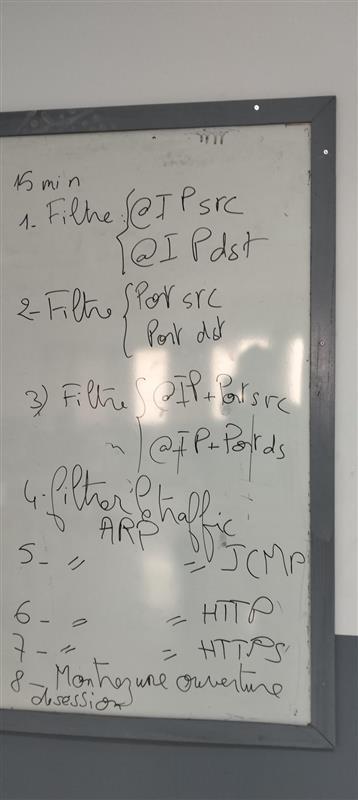 15 min
1- Filtre { @IP src
{ @IP dst
2- Filtre { Port src
Port dst
3) Filtre { @IP + Port src
" } @IP + Port ds
4. filtrer le traffic
ARP
5 - " = ICMP
6 - " = HTTP
7 - " = HTTPS
8 - Montrez une ouverture
de session